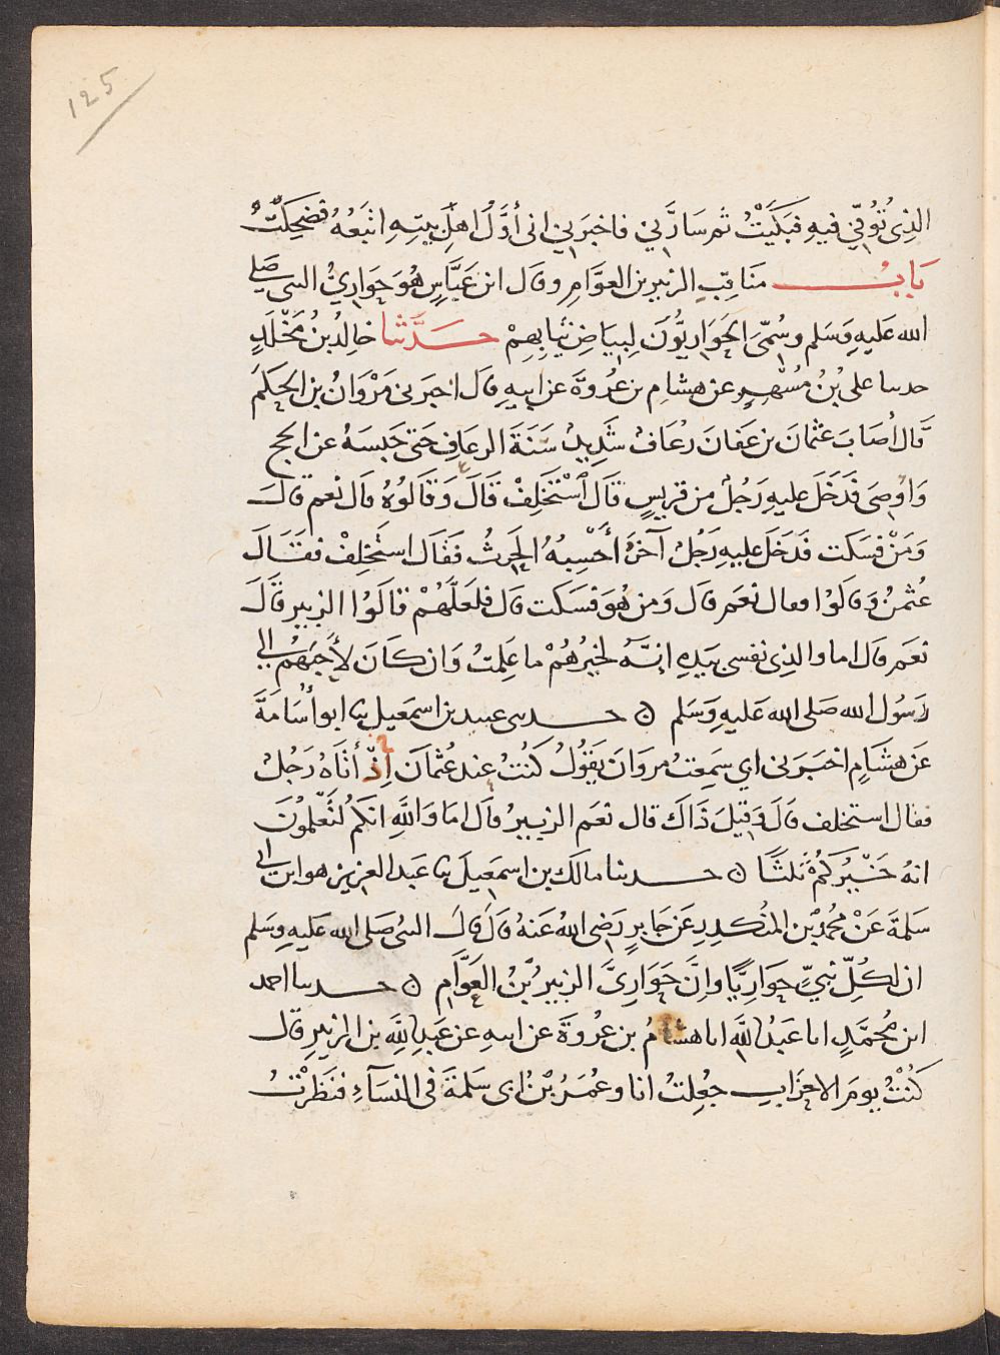 125
الذِى تُوُفِّيَ فيهِ فَبَكَيْتُ ثم سَارَّنِي فاخبرَنِي انى أوَّلُ اهلِ بيتِهِ اتبَعُهُ فضحِكْتُ
بَابُ مناقِبِ الزبير بن العوَّامِ وقال ابن عَبَّاسٍ هُوَ حَوَارِيُّ النبى صَلى
الله عَليهِ وَسَلم وسُمِّىَ الحَوَاريُّونَ لِبيَاضِ ثيَابِهِمْ حَدَّثنا خالدُ بنُ مَخْلَدٍ
حدىنا على بْنُ مُسْهِرٍ عن هشامِ بن عرُوةَ عن ابيهِ قال اخبرنى مَرْوَانُ بن الحكمَ
قَال أصَابَ عثمانَ بن عَفانَ رُعَافٌ شَدِيدٌ سَنَةَ الرعَافِ حَتى حَبَسَهُ عن الحج
وَاوْصَى فَدَخَلَ عليهِ رَجُلٌ من قريشٍ قَال اسْتَخلِفْ قَالَ وَقَالوُهُ قال نعم قال
وَمَنْ فسَكت فَدَخَلَ عليهِ رَجُلٌ آخرُ أحْسِبُهُ الحَرِثُ فَقَال استَخلِفْ فقَالَ
عُثمنُ وَقالوْا فقال نعَم قال وَمن هُوَ فسَكت قال فلعَلهُمْ قالَوُا الزبير قَالَ
نعَم قال اما والذِى نفسى بيَدِهِ إنهُ لخيرُهُمْ ما علِمتُ وَان كانَ لأحَبهُمْ الى
رَسُول الله صَلى الله عَليهِ وَسَلم ۞ حدىنى عبيد بن اسمَعيل ىنا ابو أسَامَةَ
عَن هشَامٍ اخبَرَنى ابي سَمِعتُ مروَانَ يَقوُلُ كنُتُ عِند عُثمَانَ إذْ أتاهُ رَجُلٌ
فقال استخلف قالَ وَقيلَ ذَاكَ قال نعَم الزبيرُ قال امَا وَاللهِ انكُم لتَعْلمُونَ
انهُ خَيْرُكمُ ثَلثًا ۞ حدىنا مالكُ بن اسمَعيلَ ىنا عَبد العزيزِ هوابن ابى
سَلمةَ عَنْ مُحمَّدِ بْنِ المنُكدِرِ عَن جَابرٍ رَضى اللهُ عَنهُ قال قال النبىُ صَلى الله عليهِ وسَلم
ان لكُلِّ نَبيٍّ حَوَارِيًّا وإنَّ حَوَارِىَّ الزبيرُ بْنُ العَوَّامِ ۞ حدىنا احمد
ابن مُحمَّدٍ انا عَبدُ اللهِ انا هشامُ بن عُروةَ عن ابيهِ عن عَبدِ اللهِ بن الزبيرِ قال
كنُتُ يومَ الاحزَابِ جعُلِتُ انا وعُمَرُ بْنُ ابى سَلمةَ فى النسَآءِ فنَظَرْتُ